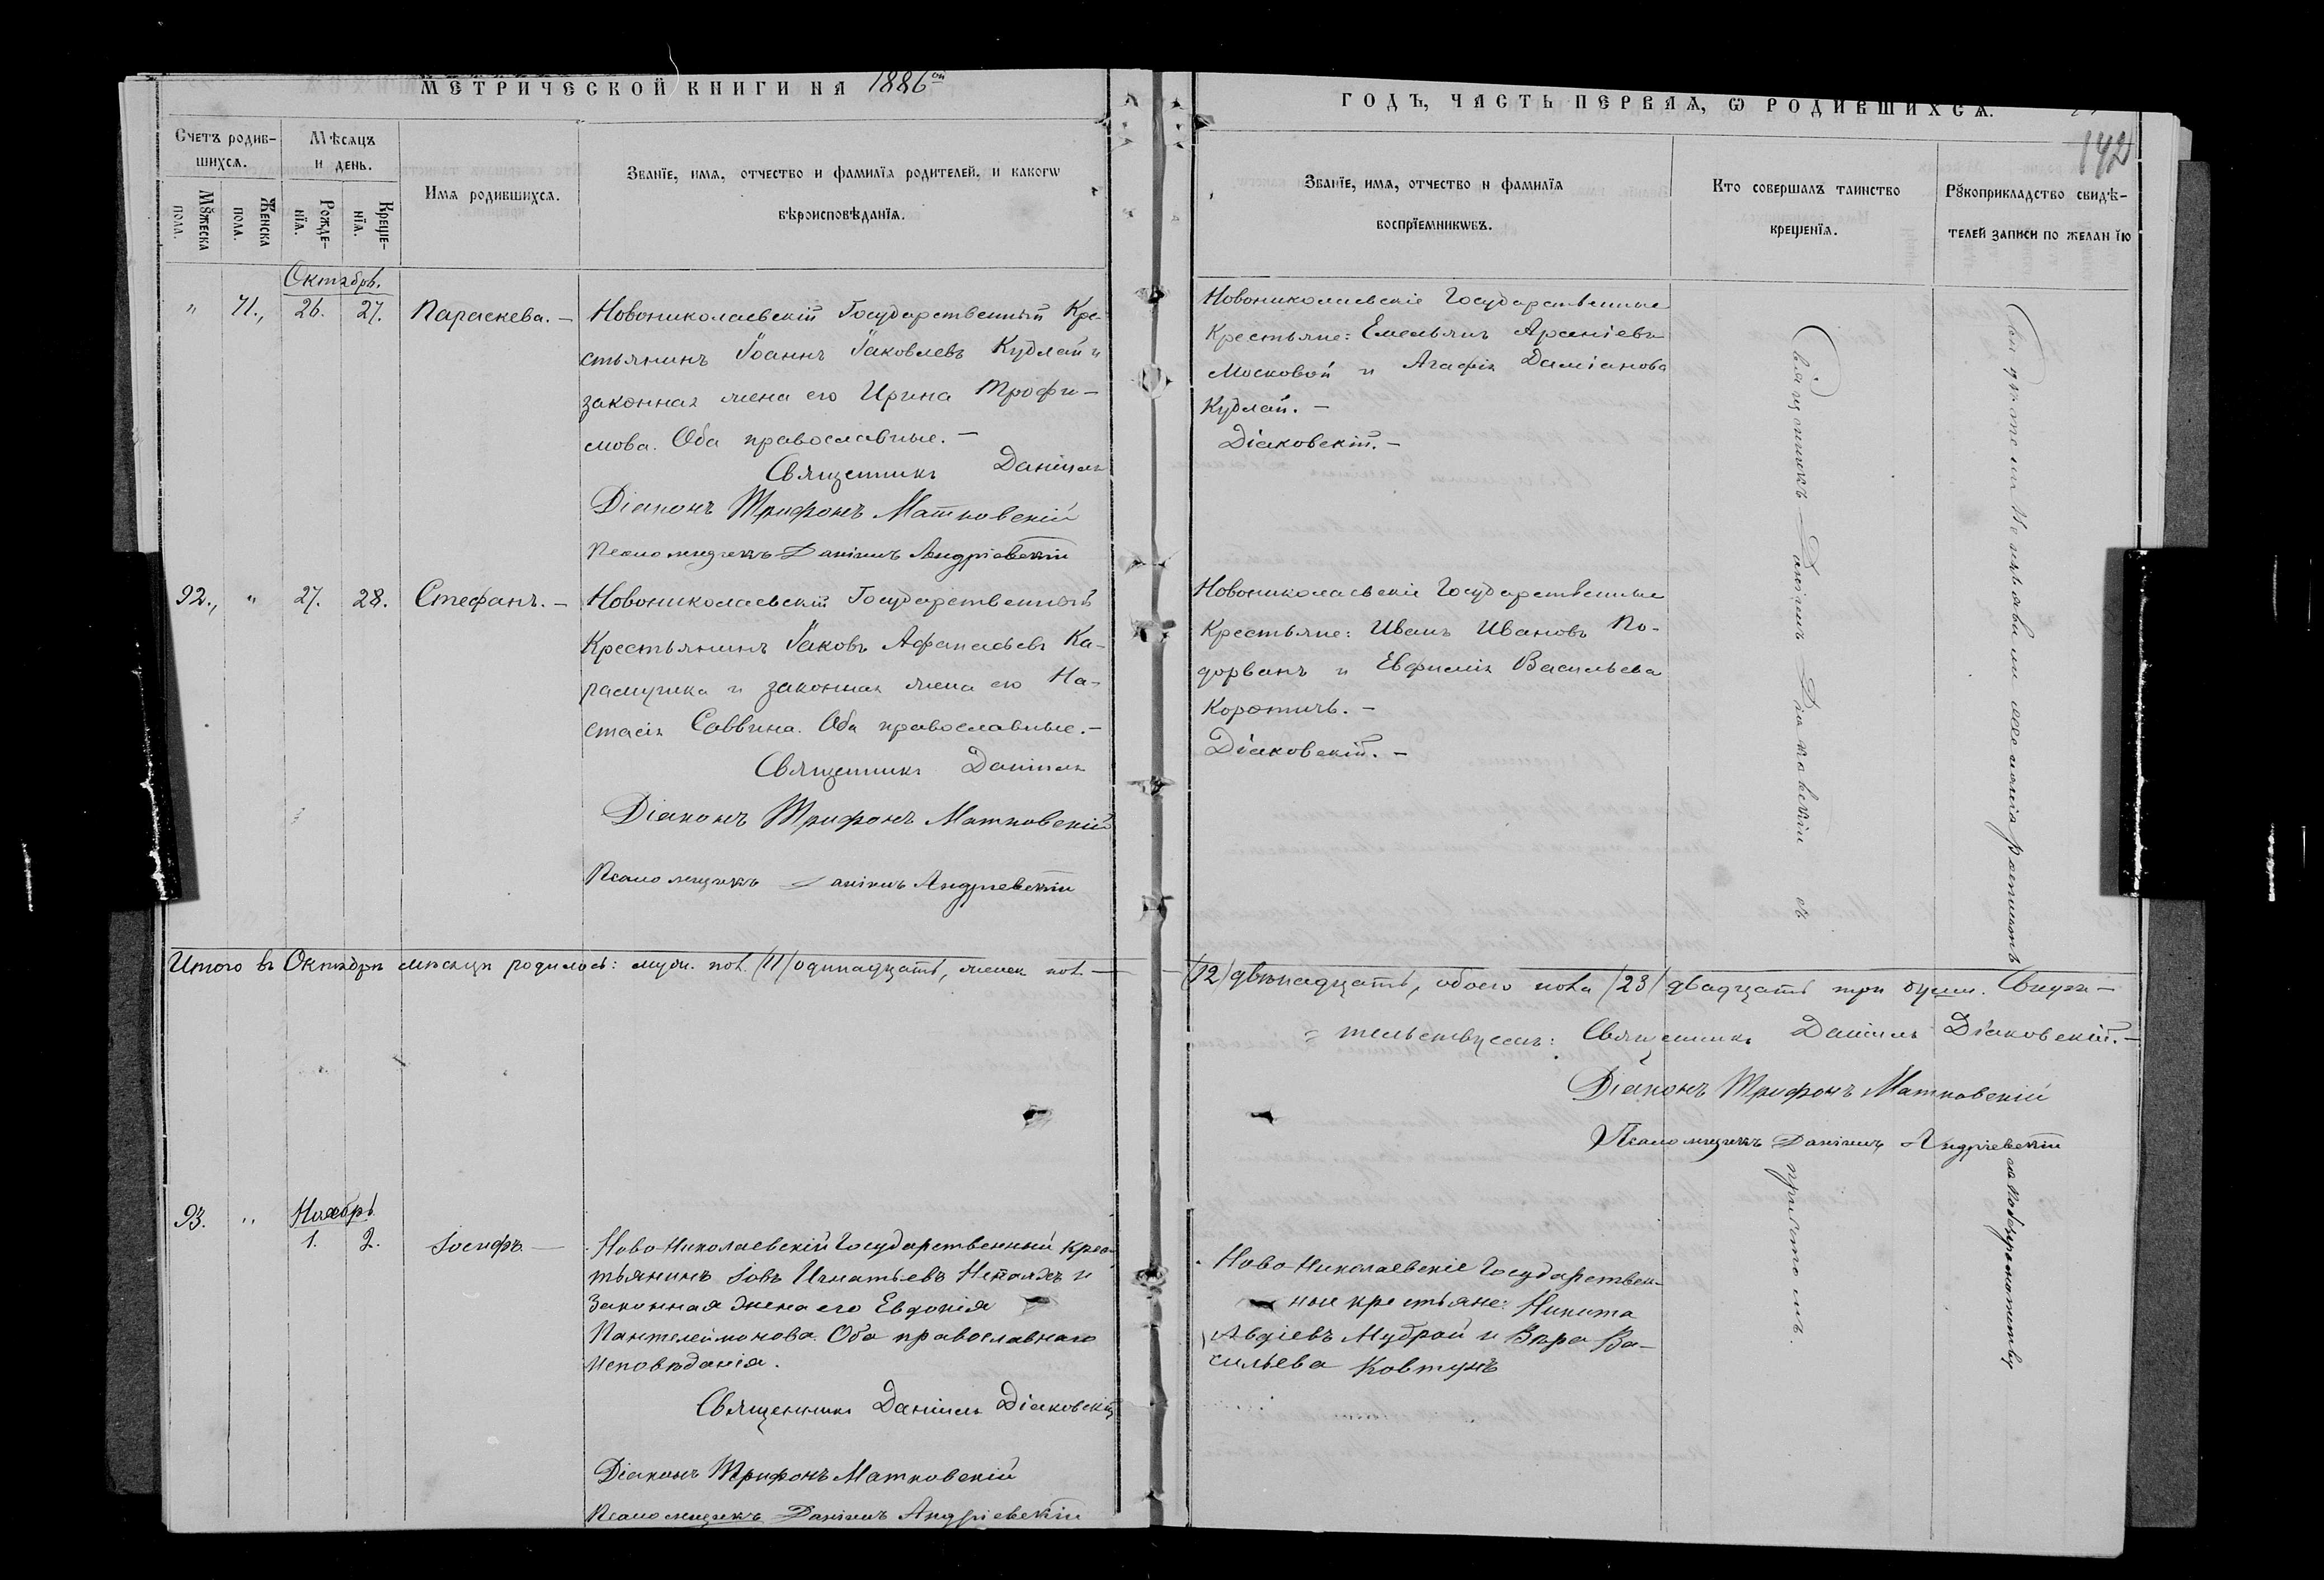 МЕТРИЧЕСКОЙ КНИГИ НА 1886ой
ГОДЪ, ЧАСТЬ ПЕРВАѦ, Ѡ РОДИВШИХСѦ.
142
Счетъ родив-
шихсѧ.
Мѣсяцъ
и день.
Мꙋжеска
пола.
Женска
пола.
Рожде-
нїѧ.
Креще-
нїѧ.
Имѧ родившихсѧ.
Званїе, имѧ, отчество и фамилїѧ родителей, и какогѡ
вѣроисповѣданїѧ.
Званїе, имѧ, отчество и фамилїѧ
воспрїемникѡвъ.
Кто совершалъ таинство
крещенїѧ.
Рꙋкоприкладство свидѣ-
телей записи по желанїю
Октябрь.
" 71., 26. 27. Параскева. –
Новониколаевскій Государственный Кре-
стьянинъ Іоаннъ Іаковлевъ Кудлай и
законная жена его Ирина Трофи-
мова. Оба православные. –
Священникъ Даніилъ
Діаконъ Трифонъ Матковскій
Псаломщикъ Даніилъ Андріевскій
Новониколаевскіе Государственные
Крестьяне: Емельянъ Арсеніевъ
Московой и Агафія Даміанова
Кудлай. –
Діаковскій. –
92., " 27. 28. Стефанъ. –
Новониколаевскій Государственный
Крестьянинъ Іаковъ Афанасьевъ Ка-
 и законная жена его На-
стасія Саввина. Оба православные. –
Священникъ Даніилъ
Діаконъ Трифонъ Матковскій
Псаломщикъ Даніилъ Андріевскій
Новониколаевскіе Государственные
Крестьяне: Иванъ Ивановъ По-
дорванъ и Евфимія Васильева
Коротичъ. –
Діаковскій. –
Священникъ Даніилъ Діаковскій съ
причтомъ.
Свидѣтели не изъявили желанія росписать
Итого въ Октябрѣ мѣсяцѣ родилось: муж. пол. /11/ одинадцать, женск пол. –
/12/ двѣнадцать, обоего пола /23/ двадцать три души. Свидѣ-
тельствуемъ: Священникъ Даніилъ Діаковскій. –
Діаконъ Трифонъ Матковскій
Псаломщикъ Даніилъ Андріевскій
Ноябрь
93. " 1. 2. Іосифъ. –
Ново-Николаевскій Государственный Крес-
тьянинъ Іовъ Игнатьевъ и
Законная жена его Евдокія
Пантелеймонова. Оба православнаго
исповѣданія.
Священникъ Даніилъ Діаковскій
Діаконъ Трифонъ Матковскій
Псаломщикъ Даніилъ Андріевскій
Ново-Николаевскіе Государствен-
ные крестьяне: Никита
Авдіевъ Мудрой и Вѣра Ва-
сильева Ковтунъ